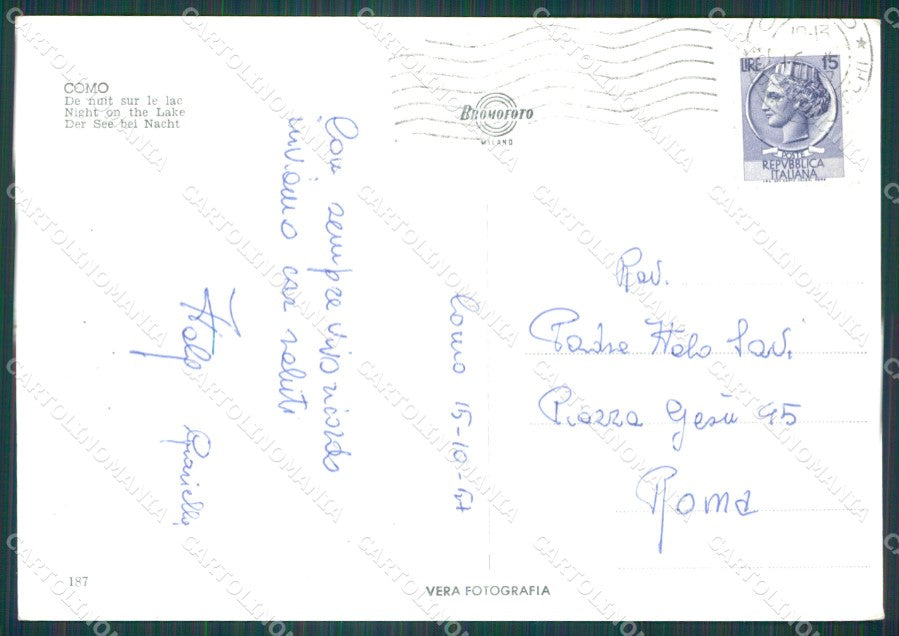 COMO
De nuit sur le lac
Night on the Lake
Der See bei Nacht
BROMOFOTO
MILANO
LIRE 15
POSTE
REPVBBLICA
ITALIANA
Como 15-10-
Con sempre vivo ricordo
inviamo cari saluti
Italo
Rev.
Padre Italo Savi
Piazza Gesù 45
Roma
187
VERA FOTOGRAFIA
CARTOLINOMANIA